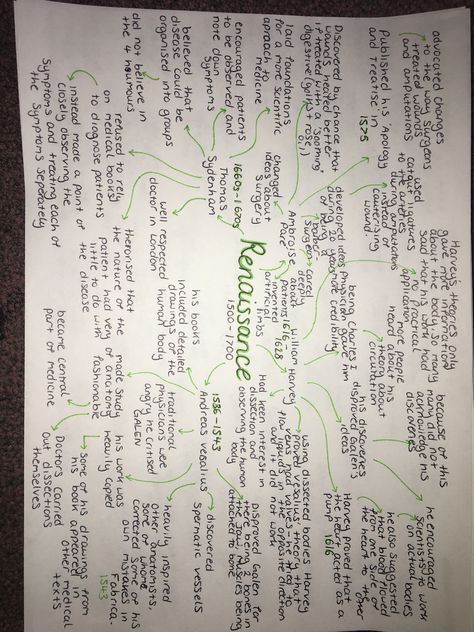 Renaissance
1500 - 1700
Thomas
Sydenham
1660s - 1670s
well respected
doctor in London
encouraged patients
to be observed and
note down
symptoms
believed that
disease could be
organised into groups
did not believe in
the 4 houmours
refused to rely
on medical books
to diagnose patients
instead made a point of
closely observing the
symptoms and treating each of
the symptoms seperately
theorised that
the nature of the
patient had very
little to do with
the disease
laid foundations
for a more scientific
approach to
medicine
Ambroise
Pare
changed
ideas about
surgery
Discovered by chance that
wounds healed better
if treated with a 'soothing
Published his Apology
and Treatise in
1575
advocated changes
to the way surgeons
treated wounds
and amputations
used
ligatures
to tie arteries
during amputations
instead of
cauterising
wound
developed ideas
during his 20 years
of being a
barber
surgeon
cared
deeply
about
patients
invented
artificial
limbs
being Charles I
physician gave him
more credibility
William Harvey
1616 - 1628
Harvey's theories only
gave more information
about the body so many
said that his work had
no practical
application
more people
heard about his
theory about
circulation
because of this
many did not
acknowledge his
discoveries
his discoveries
disproved Galen's
ideas
he encouraged
scientists to work
on actual bodies
he also suggested
that blood flowed
from one side of
the heart to the other
Harvey proved that
the heart acted as a
pump 1616
using dissected bodies Harvey
proved Vesalius theory that
veins had valves - he tried to
flow liquids in the opposite direction
and it did not work
Had keen interest in
dissection and
observing the human
body
Andreas vesalius
1536 - 1543
Disproved Galen for
there being 2 bones in
the jaw and muscles being
attached to bone
discovered
spermatic vessels
heavily inspired
other anatomists,
some of
corrected some of his
own mistakes in
Fabrica
1543
traditional
physicians were
angry he critised
GALEN
his books
included detailed
drawings of the
human body
his work was
heavily copied
made study
of anatomy
fashionable
became central
part of medicine
Doctors carried
out dissections
themselves
some of his drawings from
his book appeared in
other medical
texts